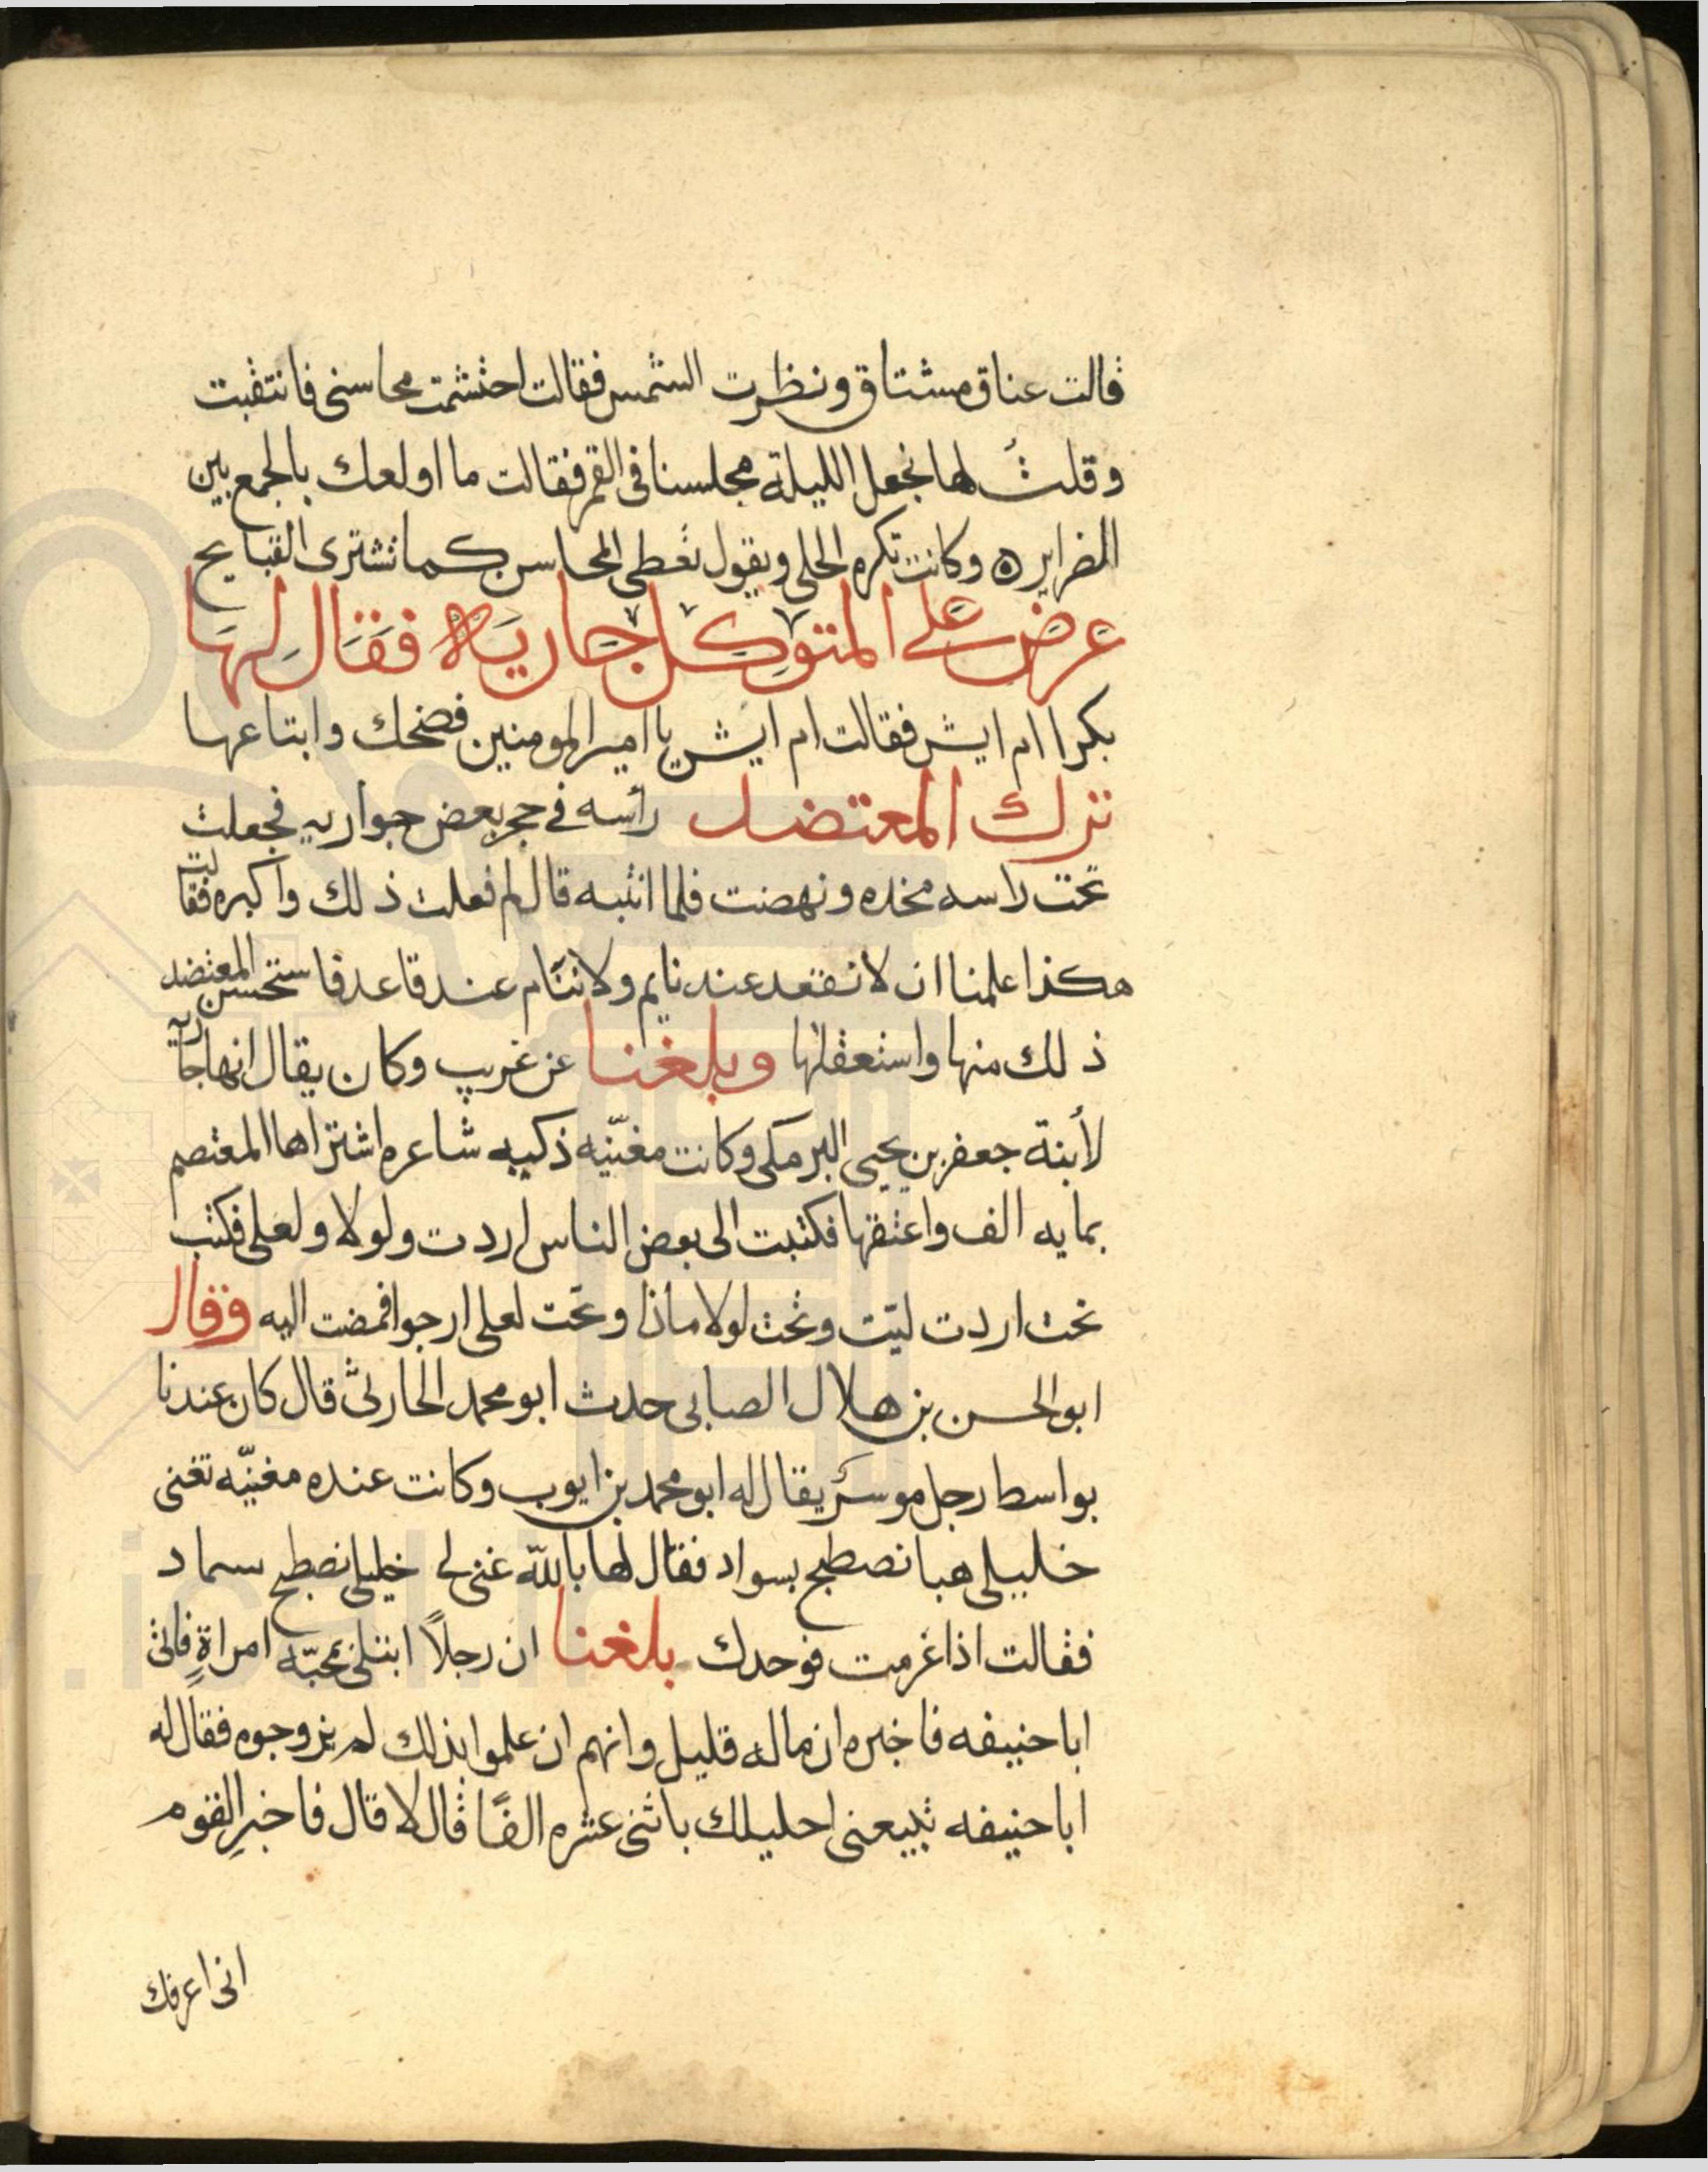 قالت عناق مشتاق ونظرت الشمس فقالت احتشمت محاسنى فانتقبت
وقلتُ لها نجعل الليلة مجلسنا فى القمر فقالت ما اولعك بالجمع بين
الضراير ٥ وكانت تكره الحلى ويقول تغطى المحاسن كما تشترى القبايح
عرض على المتوكل جاريه فقال لها
بكرا ام ايش فقالت ام ايش يا امير المومنين فضحك وابتاعها
ترك المعتضد راسه فى حجر بعض جواريه فجعلت
تحت راسه مخده ونهضت فلما انتبه قال لم فعلت ذلك واكبره فقالت
هكذا علمنا ان لا نقعد عند نايم ولا ننام عند قاعد فاستحسن المعتضد
ذلك منها واستعقلها وبلغنا عن غريب وكان يقال انها جاريه
لأبنة جعفر بن يحيى البرمكى وكانت مغنّيه ذكيه شاعره اشتراها المعتصم
بمايه الف واعتقها فكتبت الى بعض الناس اردت ولولا ولعلى فكتب
تحت اردت ليّت وتحت لولا ماذا وتحت لعلى ارجوا فمضت اليه وقال
ابو الحسن بن هلال الصابى حدث ابو محمد الحارثى قال كان عندنا
بواسط رجل موسر يقال له ابو محمد بن ايوب وكانت عنده مغنيّه تغنى
خليلى هبا نصطبح بسواد فقال لها بالله غنى لى خليلى نصطبح سماد
فقالت اذا عزمت فوحدك بلغنا ان رجلاً ابتلى بمحبّه امراةٍ فاتى
ابا حنيفه فاخبره ان ماله قليل وانهم ان علموا بذلك لم يزوجوه فقال له
ابا حنيفه تبيعنى احليلك باثنى عشره الفًا قال لا قال فاخبرِ القوم
انى اعرفك